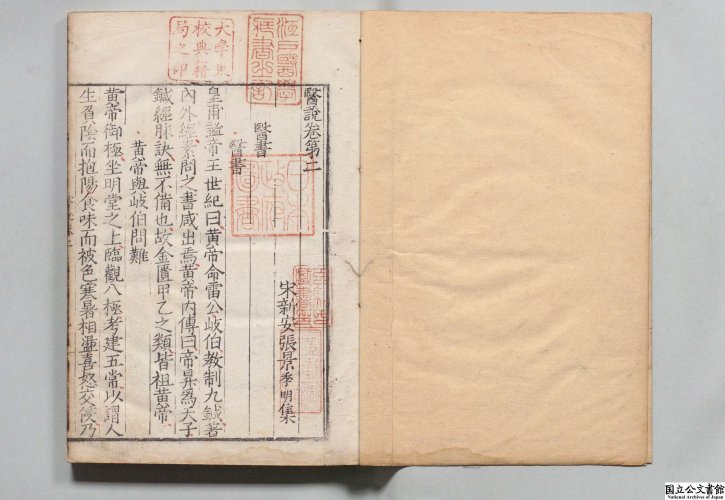 醫說卷第二
宋新安張景季明集
醫書
醫書
皇甫謐帝王世紀曰黃帝命雷公歧伯教制九鍼著
內外經素問之書咸出焉黃帝內傳曰帝昇為天子
鍼經脉訣無不備也故金匱甲乙之類皆祖黃帝
黃帝與歧伯問難
黃帝御極坐明堂之上臨觀八極考建五常以謂人
生負陰而抱陽食味而被色寒暑相盪喜怒交侵乃
江戶醫學藏書之記
大學東校典籍局之印
日本政府圖書
国立公文書館
National Archives of Japan